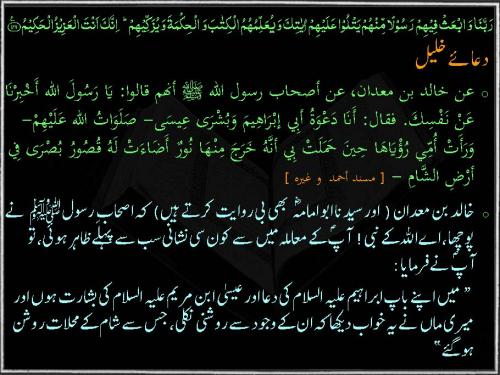 رَبَّنَا وَابْعَثْ فِيهِمْ رَسُولًا مِّنْهُمْ يَتْلُوا عَلَيْهِمْ اٰيٰتِكَ وَيُعَلِّمُهُمُ الْكِتٰبَ وَالْحِكْمَةَ وَيُزَكِّيْهِمْ ۭ اِنَّكَ اَنْتَ الْعَزِيْزُ الْحَكِيْمُ
دعائے خلیل
عن خالد بن معدان، عن أصحاب رسول الله ﷺ أنهم قالوا: يَا رَسُولَ الله أَخْبِرْنَا
عَنْ نَفْسِكَ. فقال: أَنَا دَعْوَةُ أَبِي إِبْرَاهِيمَ وَبُشْرَى عِيسَى– صَلَوَاتُ الله عَلَيْهِمْ–
وَرَأَتْ أُمِّي رُؤْيَاهَا حِينَ حَمَلَتْ بِي أَنَّهُ خَرَجَ مِنْهَا نُورٌ أَضَاءَتْ لَهُ قُصُورُ بُصْرَى فِي
أَرْضِ الشَّامِ – [ مسند احمد و غیرہ ]
خالد بن معدان ( اور سیدنا ابوامامہؓ بھی یہی روایت کرتے ہیں) کہ اصحاب رسول ﷺ نے
پوچھا، اے اللہ کے نبی! آپؐ کے معاملہ میں سے کون سی نشانی سب سے پہلے ظاہر ہوئی، تو
آپؐ نے فرمایا:
” میں اپنے باپ ابراہیم علیہ السلام کی دعا اور عیسیٰ ابن مریم علیہ السلام کی بشارت ہوں اور
میری ماں نے یہ خواب دیکھا کہ ان کے وجود سے روشنی نکلی، جس سے شام کے محلات روشن
ہو گئے “